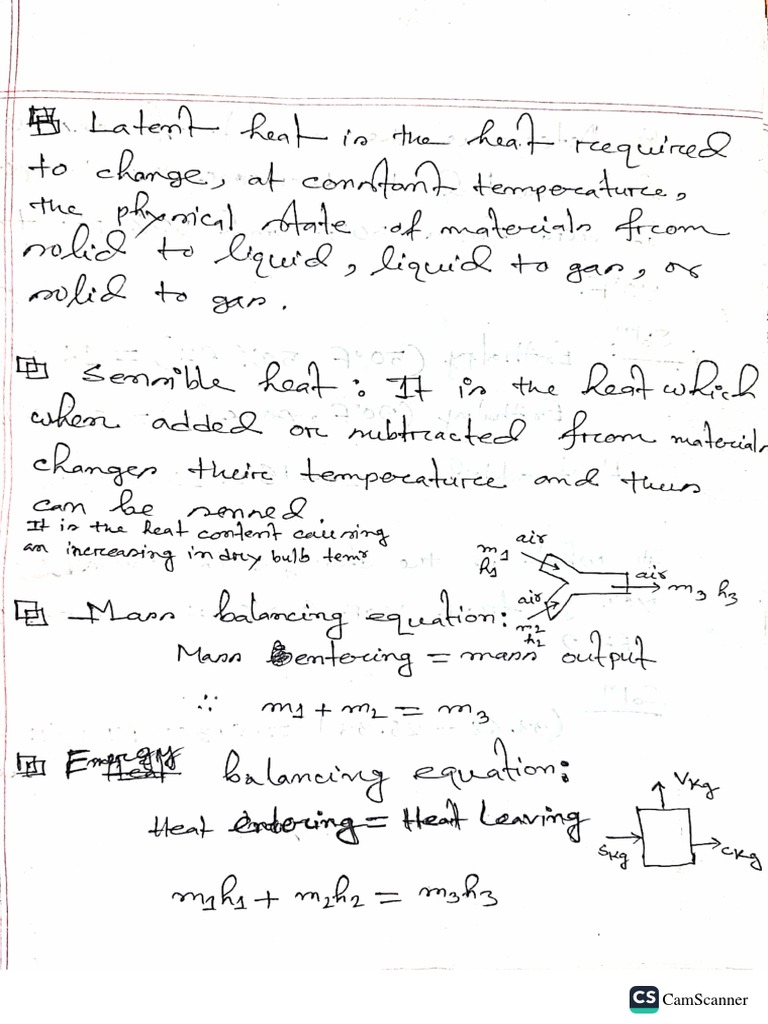 Latent heat is the heat rcequired
to change, at constant temperature,
the physical state of materials from
solid to liquid, liquid to gas, or
solid to gas.
Sensible heat: It is the heat which
when added or subtracted from materials
changes their temperature and thus
can be sensed.
It is the heat content causing
an increasing in dry bulb temr
air
m1
h1
air
m3 h3
air
m2
h2
Mass balancing equation:
Mass entering = mass output
∴ m1 + m2 = m3
Energy balancing equation:
Heat entering = Heat Leaving
m1h1 + m2h2 = m3h3
VKg
SKg
CKg
CS CamScanner